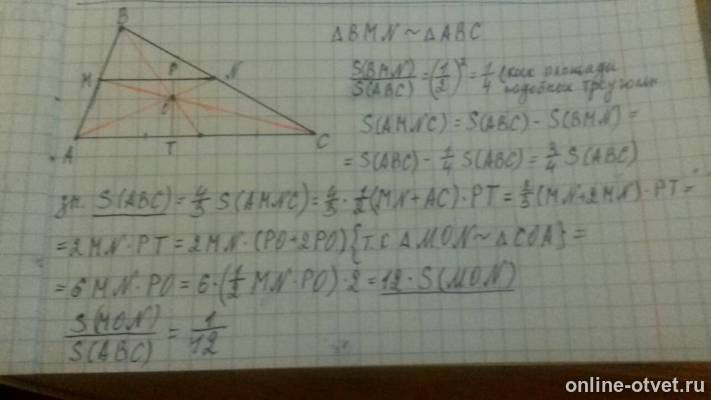 B
△BMN ~ △ABC
M P N
S(BMN)/S(ABC) = (1/2)² = 1/4 (как площади подобных треугольн
O
S(AMNC) = S(ABC) - S(BMN) =
A T C
= S(ABC) - 1/4 S(ABC) = 3/4 S(ABC)
зн. S(ABC) = 4/3 S(AMNC) = 4/3 · 1/2 (MN + AC) · PT = 2/3 (MN + 2MN) · PT =
= 2MN · PT = 2MN · (PO + 2PO) {т.с △MON ~ △COA} =
= 6MN · PO = 6 · (1/2 MN · PO) · 2 = 12 · S(MON)
S(MON)/S(ABC) = 1/12
online-otvet.ru